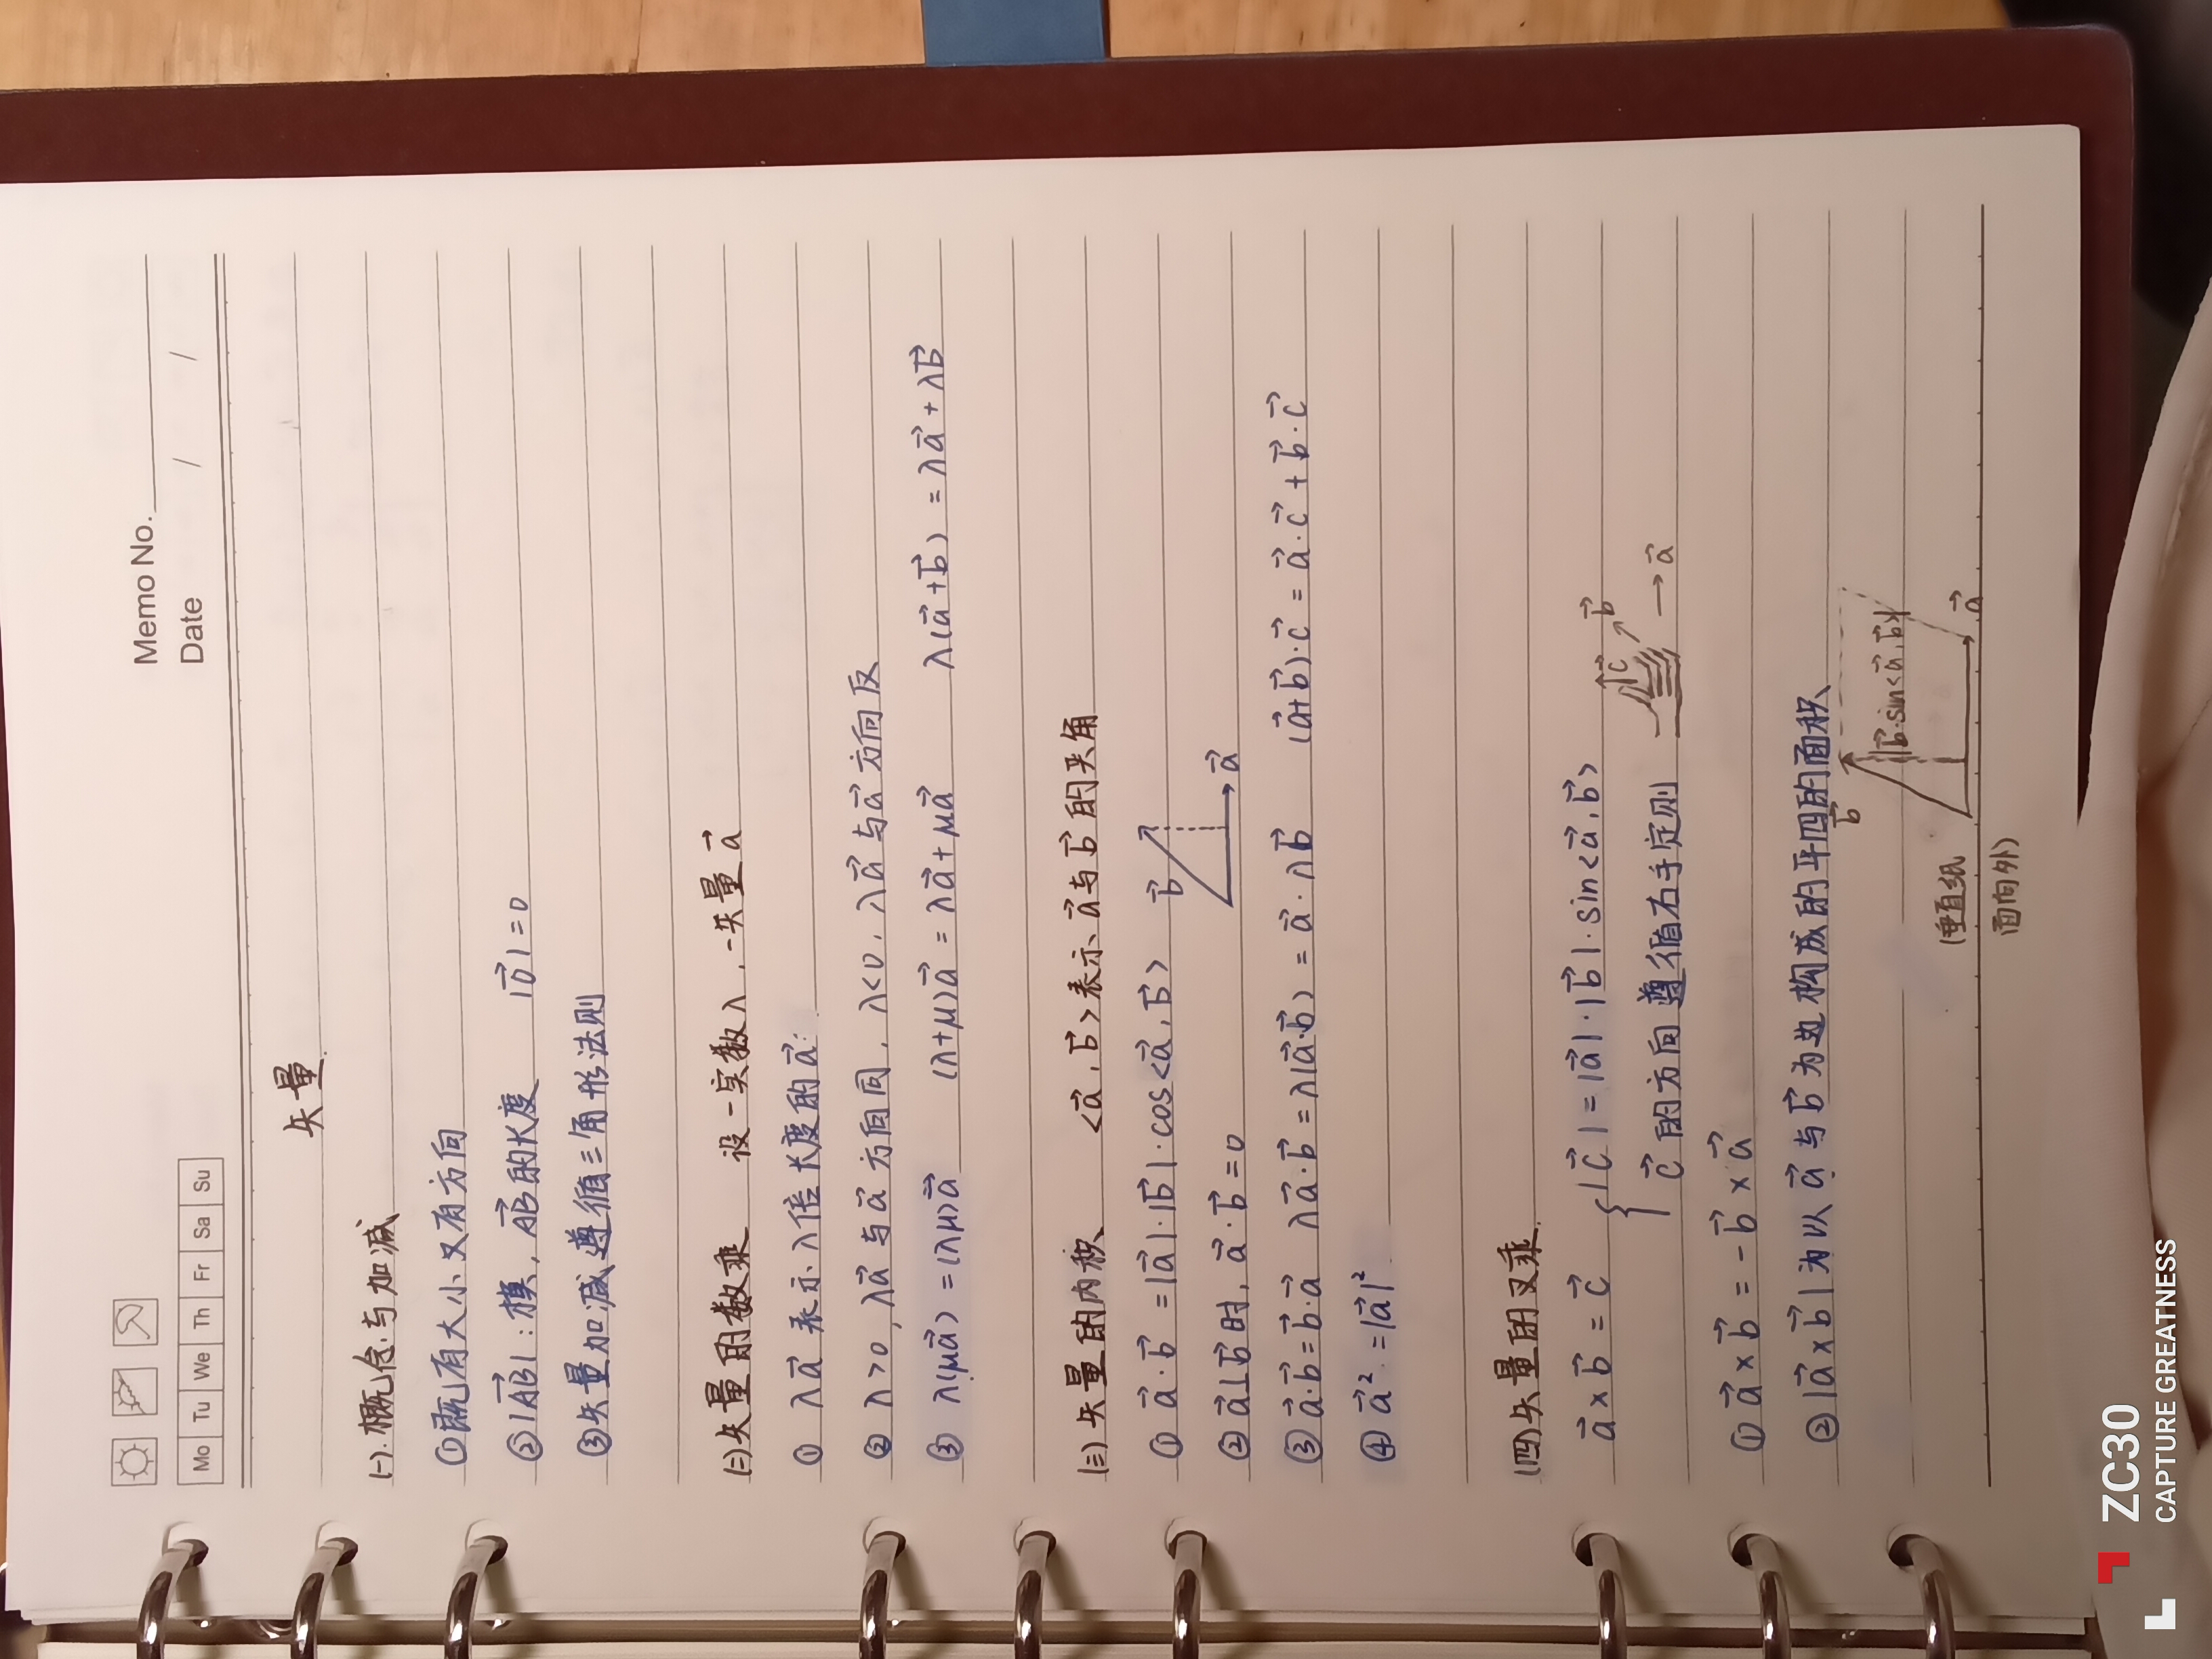 Memo No.
Date / /
Mo Tu We Th Fr Sa Su
矢量
(一).概念与加减
①既有大小又有方向
②|AB→|:模,AB→的长度 |0→|=0
③矢量加减遵循三角形法则
(二)矢量的数乘 设一实数λ,一矢量a→
① λa→表示λ倍长度的a→.
② λ>0,λa→与a→方向同,λ<0,λa→与a→方向反
③ λ(μa→)=(λμ)a→ (λ+μ)a→=λa→+μa→ λ(a→+b→)=λa→+λb→
(三)矢量的内积 <a→,b→>表示a→与b→的夹角
① a→·b→=|a→|·|b→|·cos<a→,b→> b→ a→
② a→⊥b→时,a→·b→=0
③ a→·b→=b→·a→ λa→·b→=λ(a→·b→)=a→·λb→ (a→+b→)·c→=a→·c→+b→·c→
④ a→²=|a→|²
(四)矢量的叉乘
a→×b→=c→ {|c→|=|a→|·|b→|·sin<a→,b→>
c→的方向遵循右手定则 c→ b→ a→
① a→×b→=-b→×a→
② |a→×b→|为以a→与b→为边构成的平四的面积
b→ |b→·sin<a→,b→>| a→
(垂直纸
面向外)
ZC30
CAPTURE GREATNESS